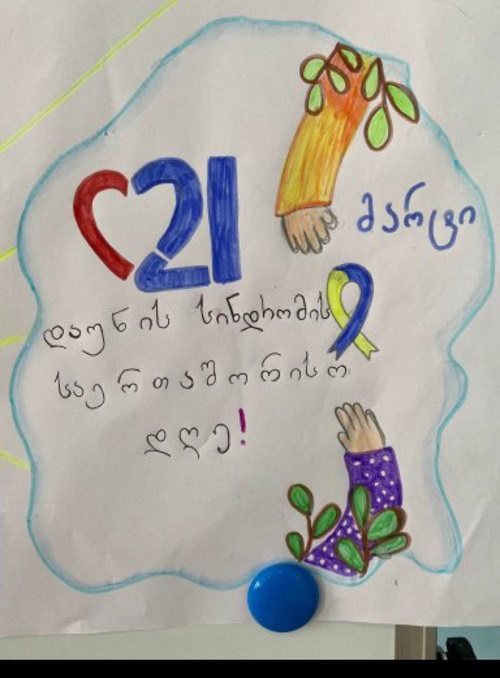 21
მარტი
დაუნის სინდრომის
საერთაშორისო
დღე!